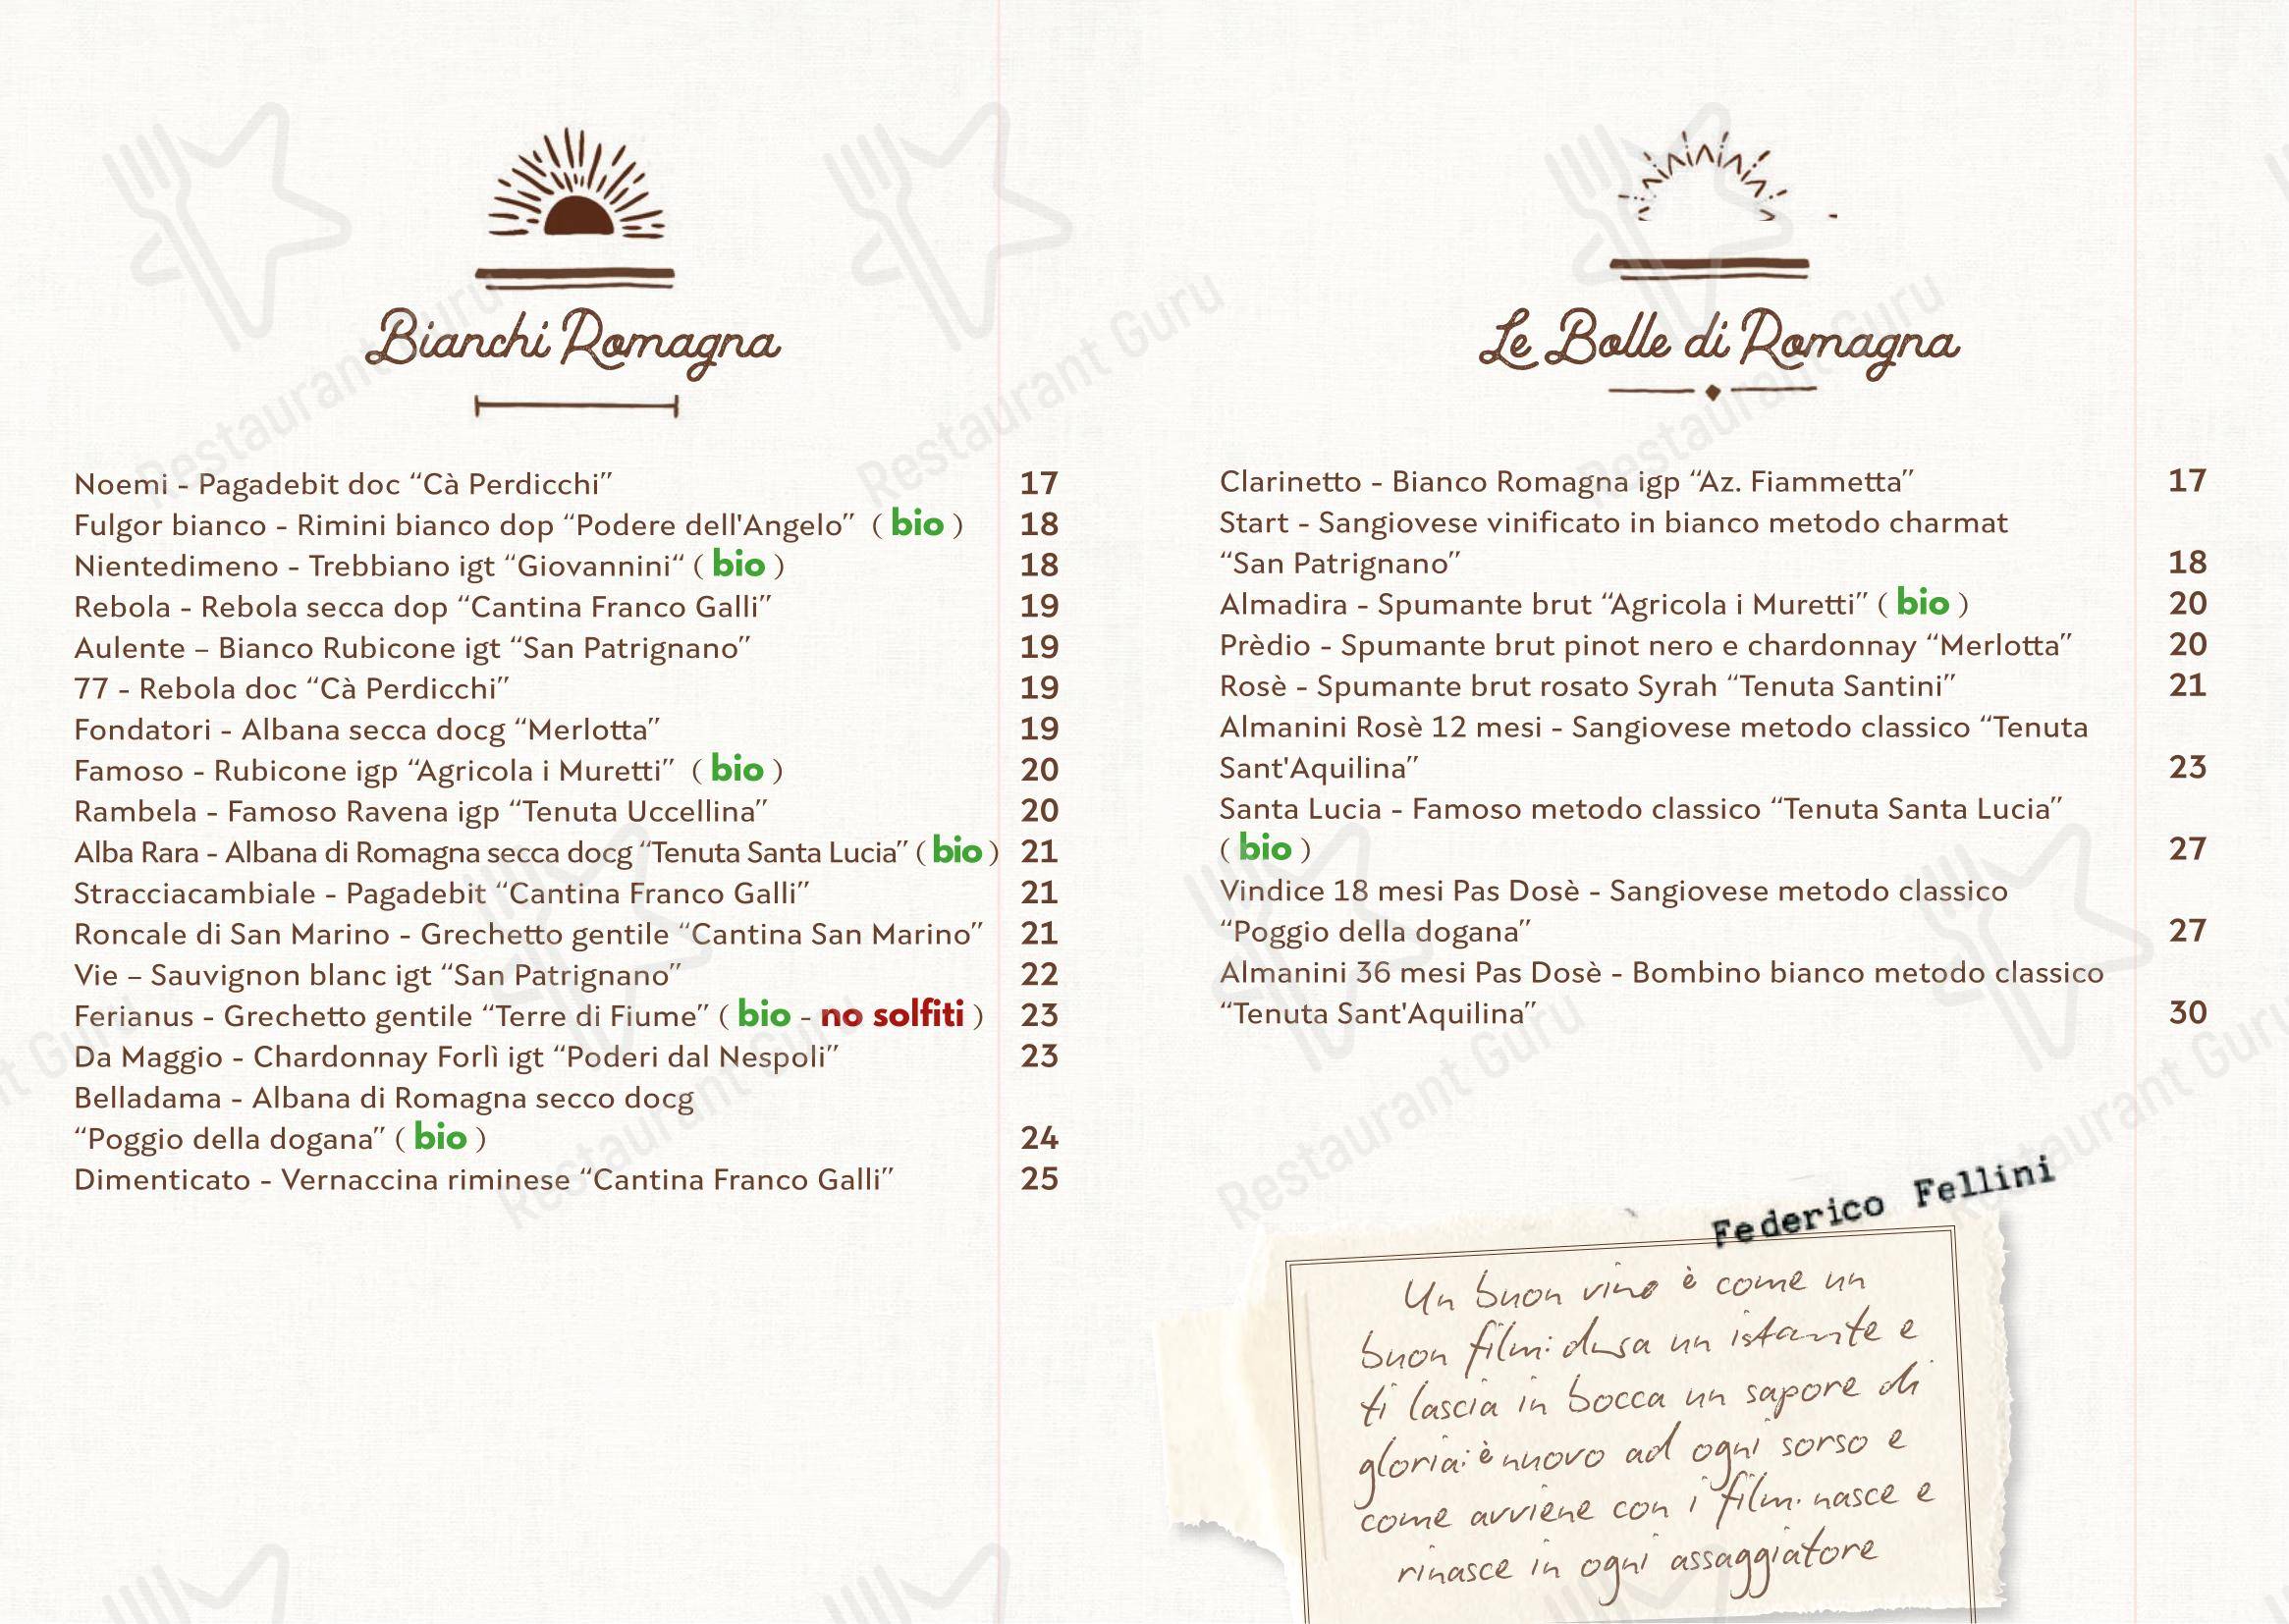 Bianchi Romagna
Noemi - Pagadebit doc “Cà Perdicchi” 17
Fulgor bianco - Rimini bianco dop “Podere dell'Angelo” ( bio ) 18
Nientedimeno - Trebbiano igt “Giovannini“ ( bio ) 18
Rebola - Rebola secca dop “Cantina Franco Galli” 19
Aulente – Bianco Rubicone igt “San Patrignano” 19
77 - Rebola doc “Cà Perdicchi” 19
Fondatori - Albana secca docg “Merlotta” 19
Famoso - Rubicone igp “Agricola i Muretti” ( bio ) 20
Rambela - Famoso Ravena igp “Tenuta Uccellina” 20
Alba Rara - Albana di Romagna secca docg “Tenuta Santa Lucia” ( bio ) 21
Stracciacambiale - Pagadebit “Cantina Franco Galli” 21
Roncale di San Marino - Grechetto gentile “Cantina San Marino” 21
Vie – Sauvignon blanc igt “San Patrignano” 22
Ferianus - Grechetto gentile “Terre di Fiume” ( bio - no solfiti ) 23
Da Maggio - Chardonnay Forlì igt “Poderi dal Nespoli” 23
Belladama - Albana di Romagna secco docg
“Poggio della dogana” ( bio ) 24
Dimenticato - Vernaccina riminese “Cantina Franco Galli” 25
Le Bolle di Romagna
Clarinetto - Bianco Romagna igp “Az. Fiammetta” 17
Start - Sangiovese vinificato in bianco metodo charmat
“San Patrignano” 18
Almadira - Spumante brut “Agricola i Muretti” ( bio ) 20
Prèdio - Spumante brut pinot nero e chardonnay “Merlotta” 20
Rosè - Spumante brut rosato Syrah “Tenuta Santini” 21
Almanini Rosè 12 mesi - Sangiovese metodo classico “Tenuta
Sant'Aquilina” 23
Santa Lucia - Famoso metodo classico “Tenuta Santa Lucia”
( bio ) 27
Vindice 18 mesi Pas Dosè - Sangiovese metodo classico
“Poggio della dogana” 27
Almanini 36 mesi Pas Dosè - Bombino bianco metodo classico
“Tenuta Sant'Aquilina” 30
Federico Fellini
Un buon vino è come un
buon film: dura un istante e
ti lascia in bocca un sapore di
gloria: è nuovo ad ogni sorso e
come avviene con i film. nasce e
rinasce in ogni assaggiatore
Restaurant Guru
Restaurant Guru
Restaurant Guru
Restaurant Guru
Restaurant Guru
Restaurant Guru